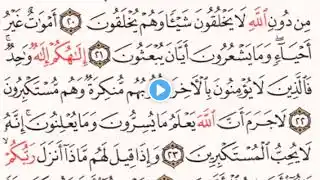 مِن دُونِ ٱللَّهِ لَا يَخْلُقُونَ شَيْـًٔا وَهُمْ يُخْلَقُونَ ٢٠ أَمْوَٰتٌ غَيْرُ
أَحْيَآءٍ ۖ وَمَا يَشْعُرُونَ أَيَّانَ يُبْعَثُونَ ٢١ إِلَـٰهُكُمْ إِلَـٰهٌ وَٰحِدٌ ۚ
فَٱلَّذِينَ لَا يُؤْمِنُونَ بِٱلْـَٔاخِرَةِ قُلُوبُهُم مُّنكِرَةٌ وَهُم مُّسْتَكْبِرُونَ
٢٢ لَا جَرَمَ أَنَّ ٱللَّهَ يَعْلَمُ مَا يُسِرُّونَ وَمَا يُعْلِنُونَ ۚ إِنَّهُۥ
لَا يُحِبُّ ٱلْمُسْتَكْبِرِينَ ٢٣ وَإِذَا قِيلَ لَهُم مَّاذَآ أَنزَلَ رَبُّكُمْ